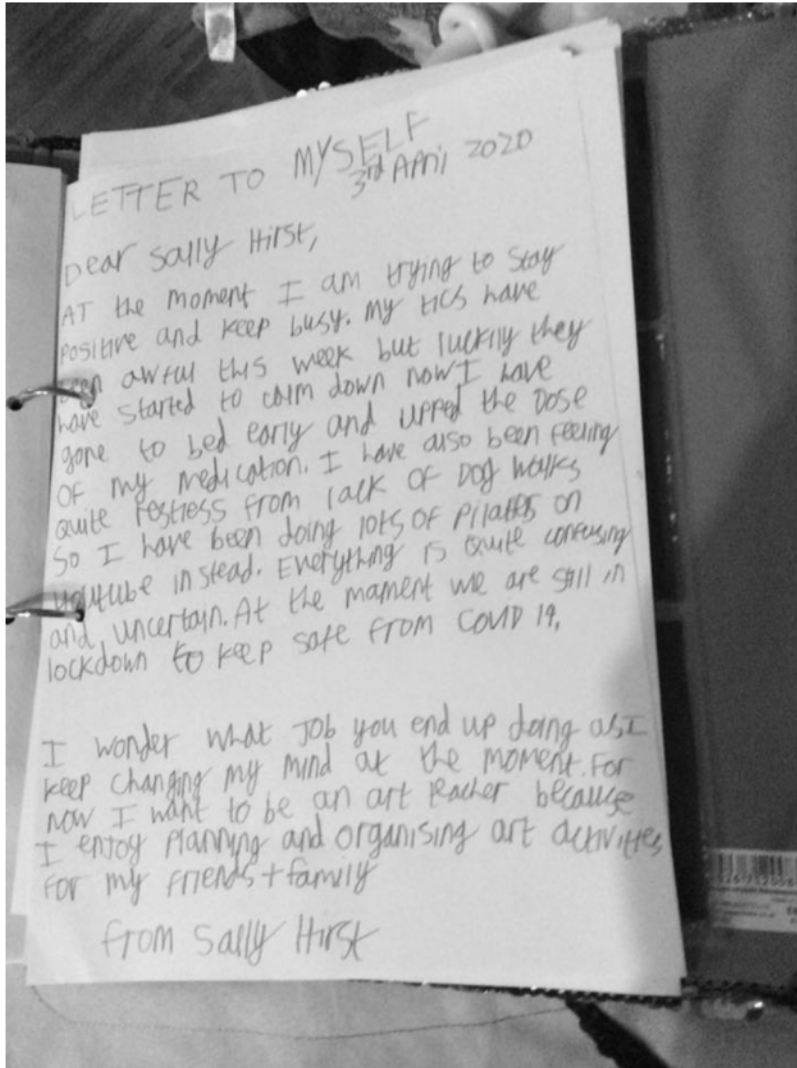 LETTER TO MYSELF
3rd April 2020
Dear Sally Hirst,
AT the moment I am trying to stay
positive and keep busy. My tics have
been awful this week but luckily they
have started to calm down now I have
gone to bed early and upped the Dose
OF my medication. I have also been feeling
quite restless from lack OF Dog walks
so I have been doing lots OF Pilates on
youtube instead. Everything is quite confusing
and uncertain. At the mament we are still in
lockdown to keep safe from COVID 19.
I wonder what Job you end up doing as I
keep changing my mind at the moment. For
now I want to be an art teacher because
I enjoy planning and organising art activities
for my friends + family
from Sally Hirst